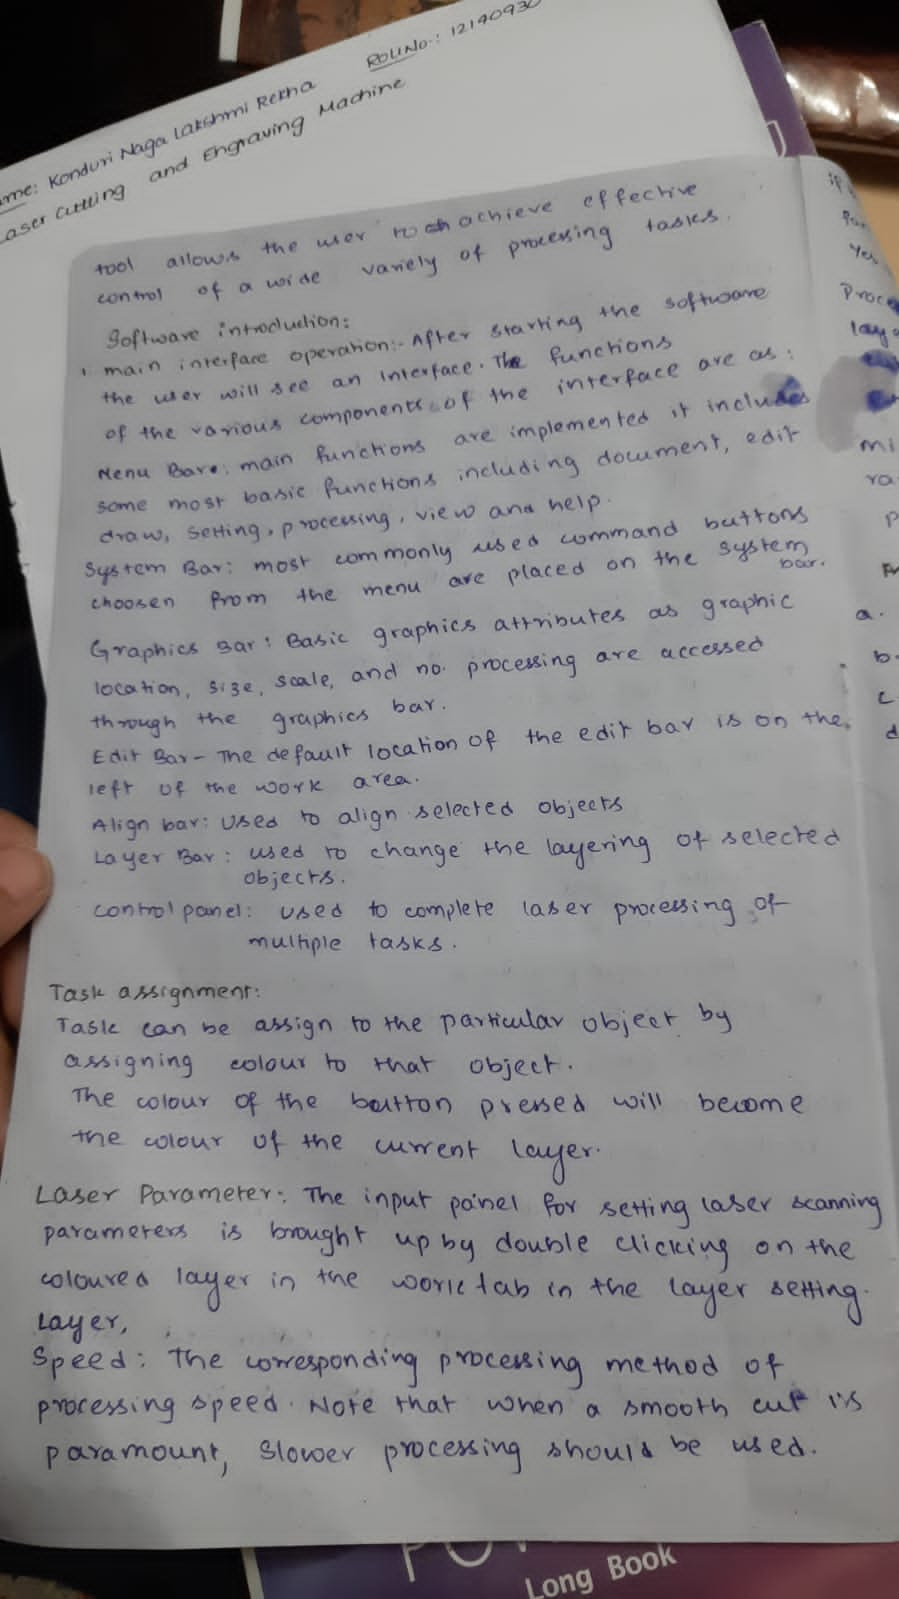 ame: Konduri Naga Lakshmi Rekha RollNo.: 1214093
Laser Cutting and Engraving Machine
tool allows the user to achieve effective
control of a wide variely of processing tasks.
Software introduction:
1. main interface operation:- After starting the software
the user will see an Interface. The functions
of the various components of the interface are as:
Menu Bare: main functions are implemented it includes
some most basic functions including document, edit
draw, Setting, processing, view and help.
System Bar: most commonly used command buttons
choosen from the menu are placed on the system
bar.
Graphics Bar: Basic graphics attributes as graphic
location, size, scale, and no. processing are accessed
through the graphics bar.
Edit Bar - The default location of the edit bar is on the
left of the work area.
Align bar: Used to align selected objects
Layer Bar: used to change the layering of selected
objects.
control panel: used to complete laser processing of
multiple tasks.
Task assignment:
Task can be assign to the particular object by
assigning colour to that object.
The colour of the button pressed will become
the colour of the current layer.
Laser Parameter: The input panel for setting laser scanning
parameters is brought up by double clicking on the
coloured layer in the work tab in the layer setting.
Layer,
Speed: The corresponding processing method of
processing speed. Note that when a smooth cut is
paramount, slower processing should be used.
if
Yes
Proce
lay
mi
ra
P
a.
b.
c
d
Long Book